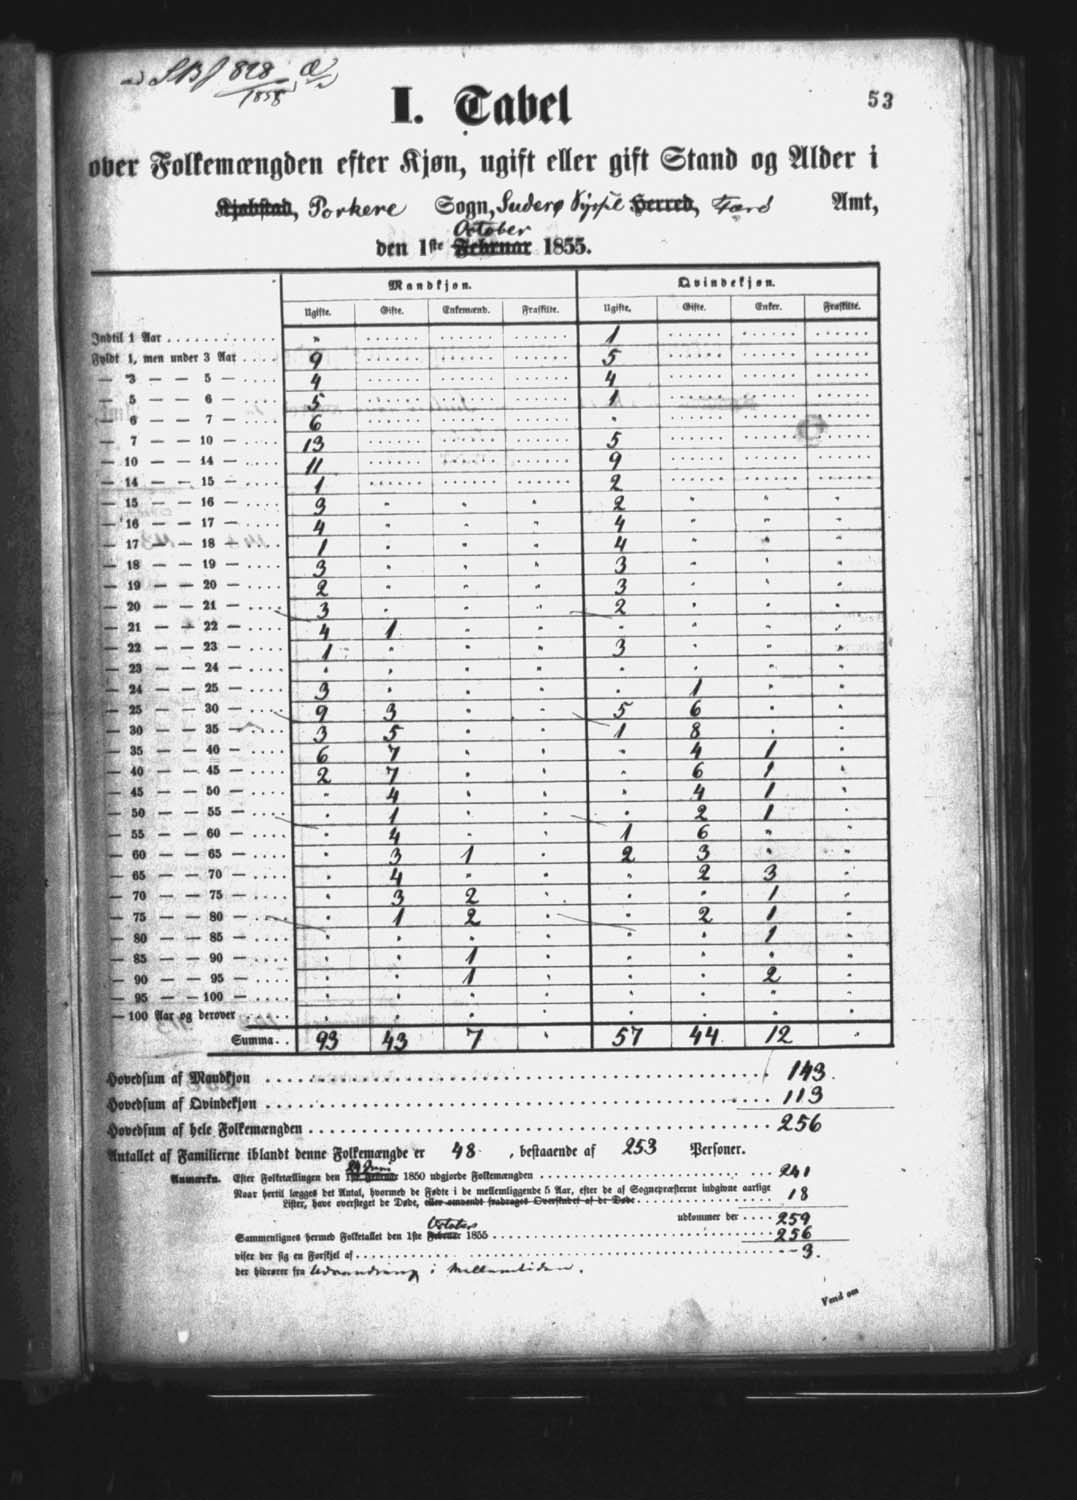 SBJ 828/1858
53
I. Tabel
over Folkemængden efter Kjøn, ugift eller gift Stand og Alder i
Kjøbstad, Porkere Sogn, Suderø Syssel Herred, Færø Amt,
October
den 1ste Februar 1855.
Mandkjøn. Qvindekjøn.
Ugifte. Gifte. Enkemænd. Fraskilte. Ugifte. Gifte. Enker. Fraskilte.
Indtil 1 Aar . . . . " 1
Fyldt 1, men under 3 Aar . . . . 9 5
— 3 — — 5 — . . . . 4 4
— 5 — — 6 — . . . . 5 1
— 6 — — 7 — . . . . 6 "
— 7 — — 10 — . . . . 13 5
— 10 — — 14 — . . . . 11 9
— 14 — — 15 — . . . . 1 2
— 15 — — 16 — . . . . 3 " " " 2 " " "
— 16 — — 17 — . . . . 4 " " " 4 " " "
— 17 — — 18 — . . . . 1 " " " 4 " " "
— 18 — — 19 — . . . . 3 " " " 3 " " "
— 19 — — 20 — . . . . 2 " " " 3 " " "
— 20 — — 21 — . . . . 3 " " " 2 " " "
— 21 — — 22 — . . . . 4 1 " " " " " "
— 22 — — 23 — . . . . 1 " " " 3 " " "
— 23 — — 24 — . . . . " " " " " " " "
— 24 — — 25 — . . . . 3 " " " " 1 " "
— 25 — — 30 — . . . . 9 3 " " 5 6 " "
— 30 — — 35 — . . . . 3 5 " " 1 8 " "
— 35 — — 40 — . . . . 6 7 " " " 4 1 "
— 40 — — 45 — . . . . 2 7 " " " 6 1 "
— 45 — — 50 — . . . . " 4 " " " 4 1 "
— 50 — — 55 — . . . . " 1 " " " 2 1 "
— 55 — — 60 — . . . . " 4 " " 1 6 " "
— 60 — — 65 — . . . . " 3 1 " 2 3 " "
— 65 — — 70 — . . . . " 4 " " " 2 3 "
— 70 — — 75 — . . . . " 3 2 " " " 1 "
— 75 — — 80 — . . . . " 1 2 " " 2 1 "
— 80 — — 85 — . . . . " " " " " " 1 "
— 85 — — 90 — . . . . " " 1 " " " " "
— 90 — — 95 — . . . . " " 1 " " " 2 "
— 95 — — 100 — . . . . " " " " " " " "
— 100 Aar og derover . . . . " " " " " " " "
Summa. . 93 43 7 " 57 44 12 "
Hovedsum af Mandkjøn . . . . 143.
Hovedsum af Qvindekjøn . . . . 113
Hovedsum af hele Folkemængden . . . . 256
Antallet af Familierne iblandt denne Folkemængde er 48 , bestaaende af 253 Personer.
Anmærkn. Efter Folketællingen den 1ste Februar 1850 udgjorde Folkemængden . . . . 241
Naar hertil lægges det Antal, hvormed de Fødte i de mellemliggende 5 Aar, efter de af Sognepræsterne indgivne aarlige
Lister, have oversteget de Døde, eller omvendt fradrages Overskudet af de Døde . . . . 18
udkommer der . . . . 259
October
Sammenlignes hermed Folketallet den 1ste Februar 1855 . . . . 256
viser der sig en Forskjel af . . . . 3.
der hidrører fra Udvandring i Mellemtiden.
Vend om